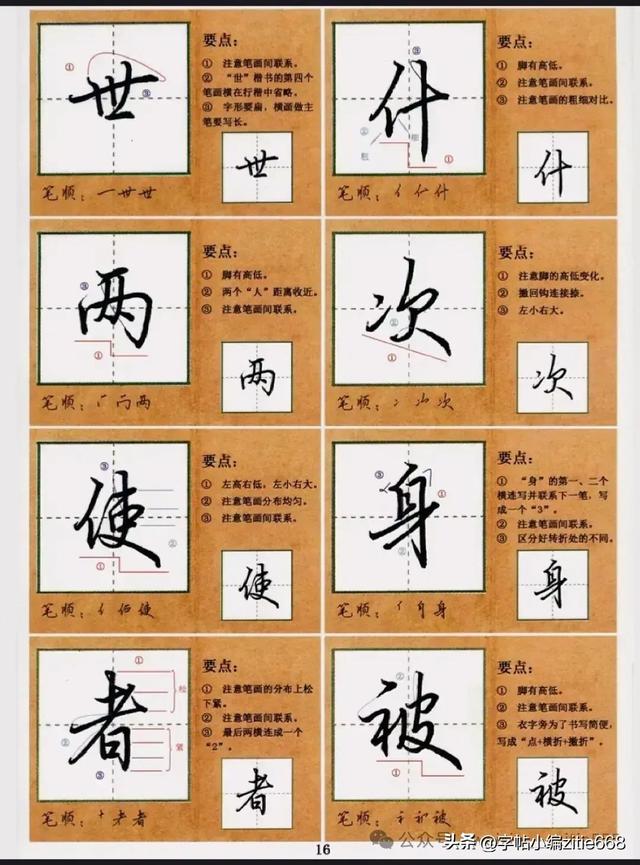 世
①
③
要点：
① 注意笔画间联系。
② “世”楷书的第四个
笔画横在行楷中省略。
③ 字形要扁，横画做主
笔要写长。
世
笔顺：一世世
什
③
②
粗
细
①
要点：
① 脚有高低。
② 注意笔画间联系。
③ 注意笔画的粗细对比。
什
笔顺：亻什什
两
③
①
要点：
① 脚有高低。
② 两个“人”距离收近。
③ 注意笔画间联系。
两
笔顺：两
次
②
①
要点：
① 注意脚的高低变化。
② 撇回钩连接捺。
③ 左小右大。
次
笔顺：次
使
③
②
①
要点：
① 左高右低，左小右大。
② 注意笔画分布均匀。
③ 注意笔画间联系。
使
笔顺：亻使
身
③
①
②
要点：
① “身”的第一、二个
横连写并联系下一笔，写
成一个“3”。
② 注意笔画间联系。
③ 区分好转折处的不同。
身
笔顺：身
者
①
松
②
紧
③
要点：
① 注意笔画的分布上松
下紧。
② 注意笔画间联系。
③ 最后两横连成一个
“2”。
者
笔顺：十者者
被
②
①
要点：
① 脚有高低。
② 注意笔画间联系。
③ 衣字旁为了书写简便，
写成“点+横折+撇折”。
被
笔顺：被
16
公众号
头条 @字帖小编zitie668